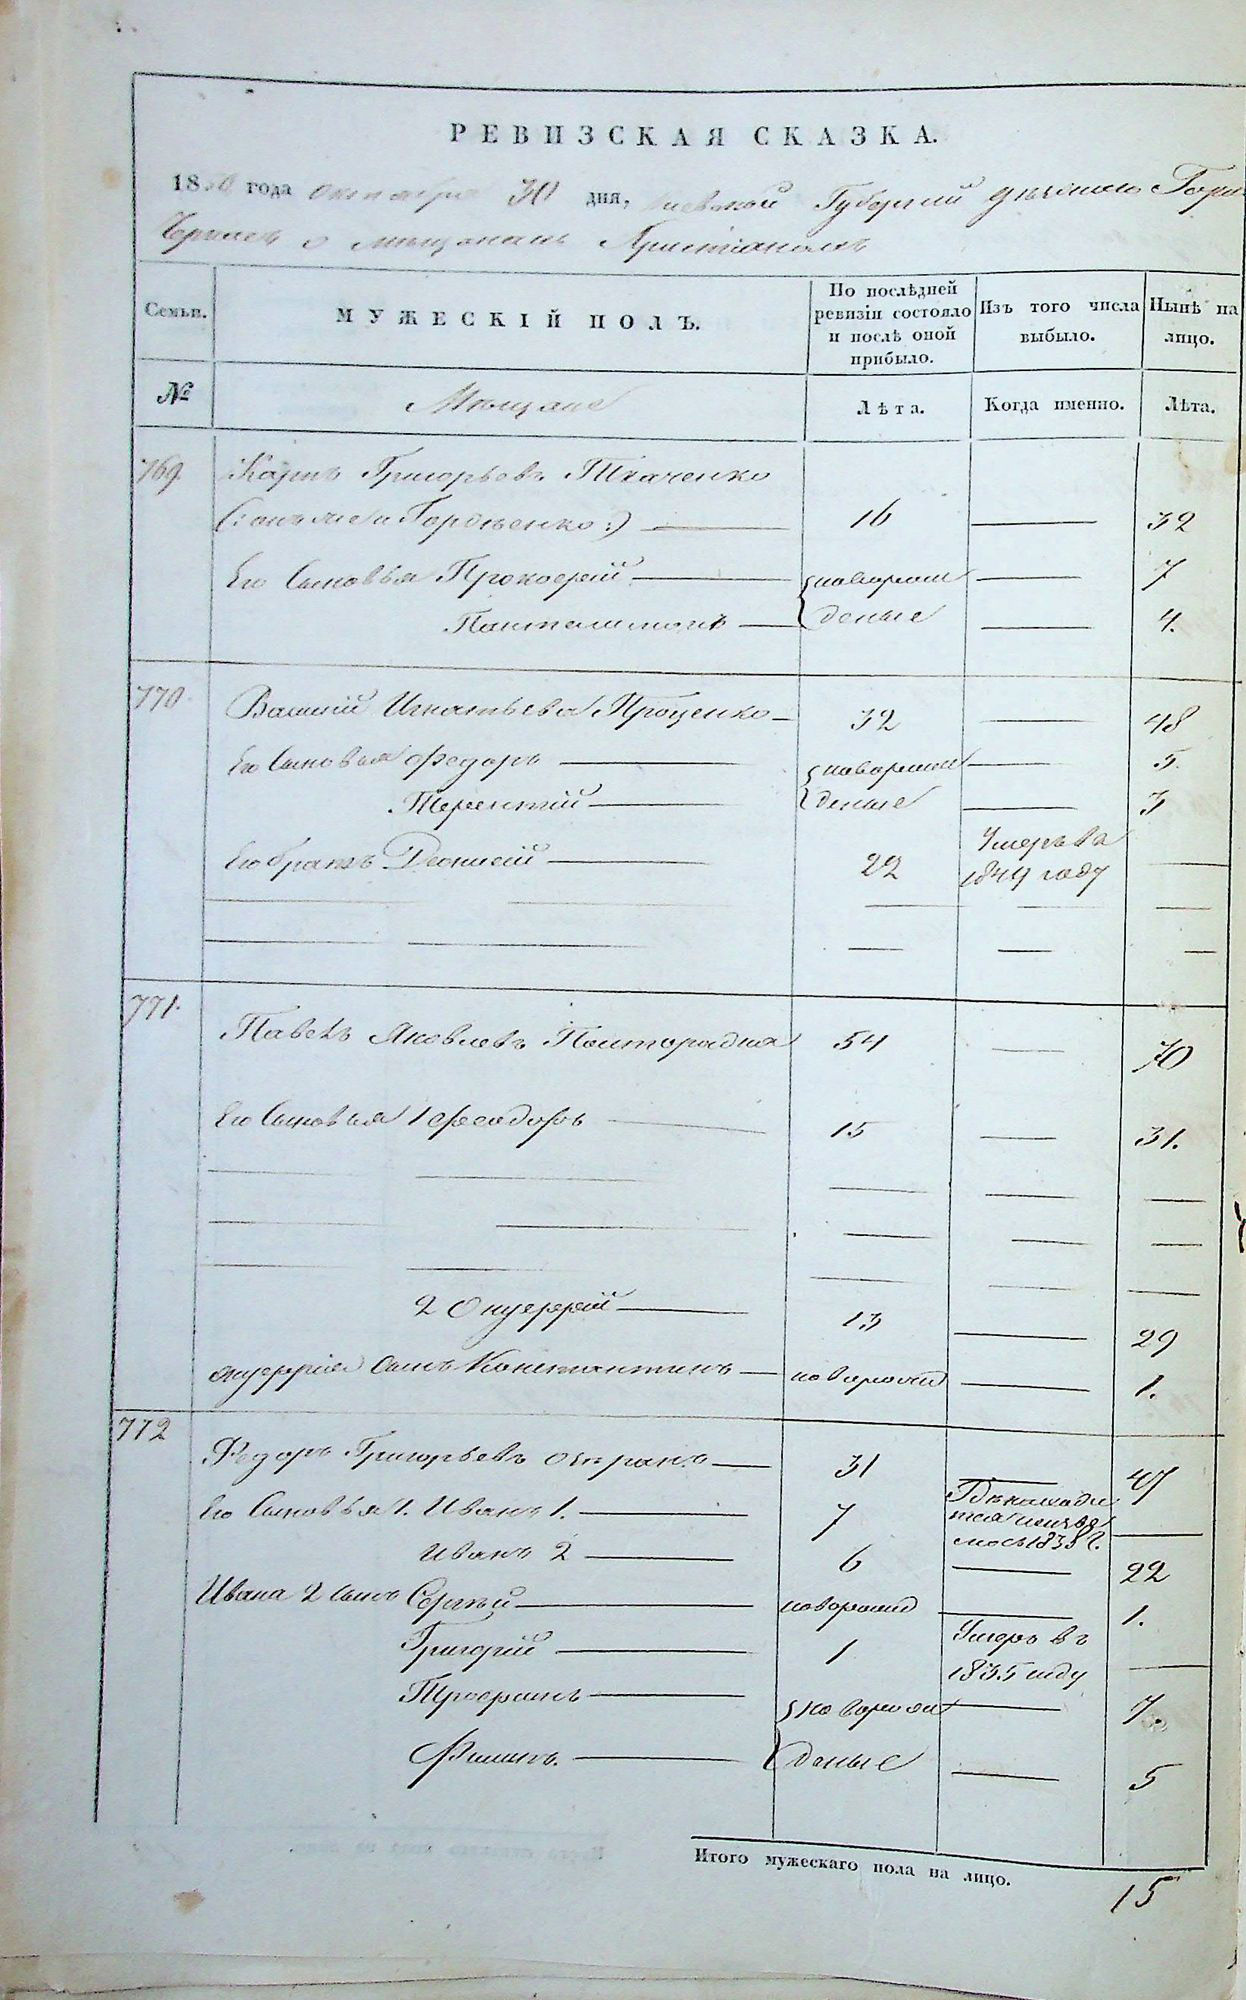 РЕВИЗСКАЯ СКАЗКА.
1850 года октября 30 дня, Киевской Губернии уѣзднаго Города
о мещанахъ Христіанахъ
Семьи. МУЖЕСКІЙ ПОЛЪ. По послѣдней ревизіи состояло и послѣ оной прибыло. Изъ того числа выбыло. Нынѣ на лицо.
№ Мѣщане Лѣта. Когда именно. Лѣта.
769 Карпъ Григорьевъ Ткаченко
(: онъ же и Гордѣенко :) 16 32
Его Сыновья Прокофій новорож 7
Пантелимонъ деные 4.
770 Василій Игнатьевъ Проценко 32 48
Его Сыновья Федоръ новорож 5.
Терентій деные 3
Его братъ Деонисій 22 Умеръ въ 1849 году
771. Павелъ Яковлевъ 54 70
Его Сыновья 1 Феодоръ 15 31.
2 Онуфрій 13 29
Онуфрія сынъ Константинъ новорожд 1.
772 Федоръ Григорьевъ 31 47
Его Сыновья 1. Иванъ 1. 7 1838 г.
Иванъ 2 6 22
Ивана 2 сынъ Сергѣй новорожд 1.
Григорій 1 Умеръ въ 1835 году
Трофимъ новорож 7.
Филипъ. деные 5
Итого мужескаго пола на лицо. 15